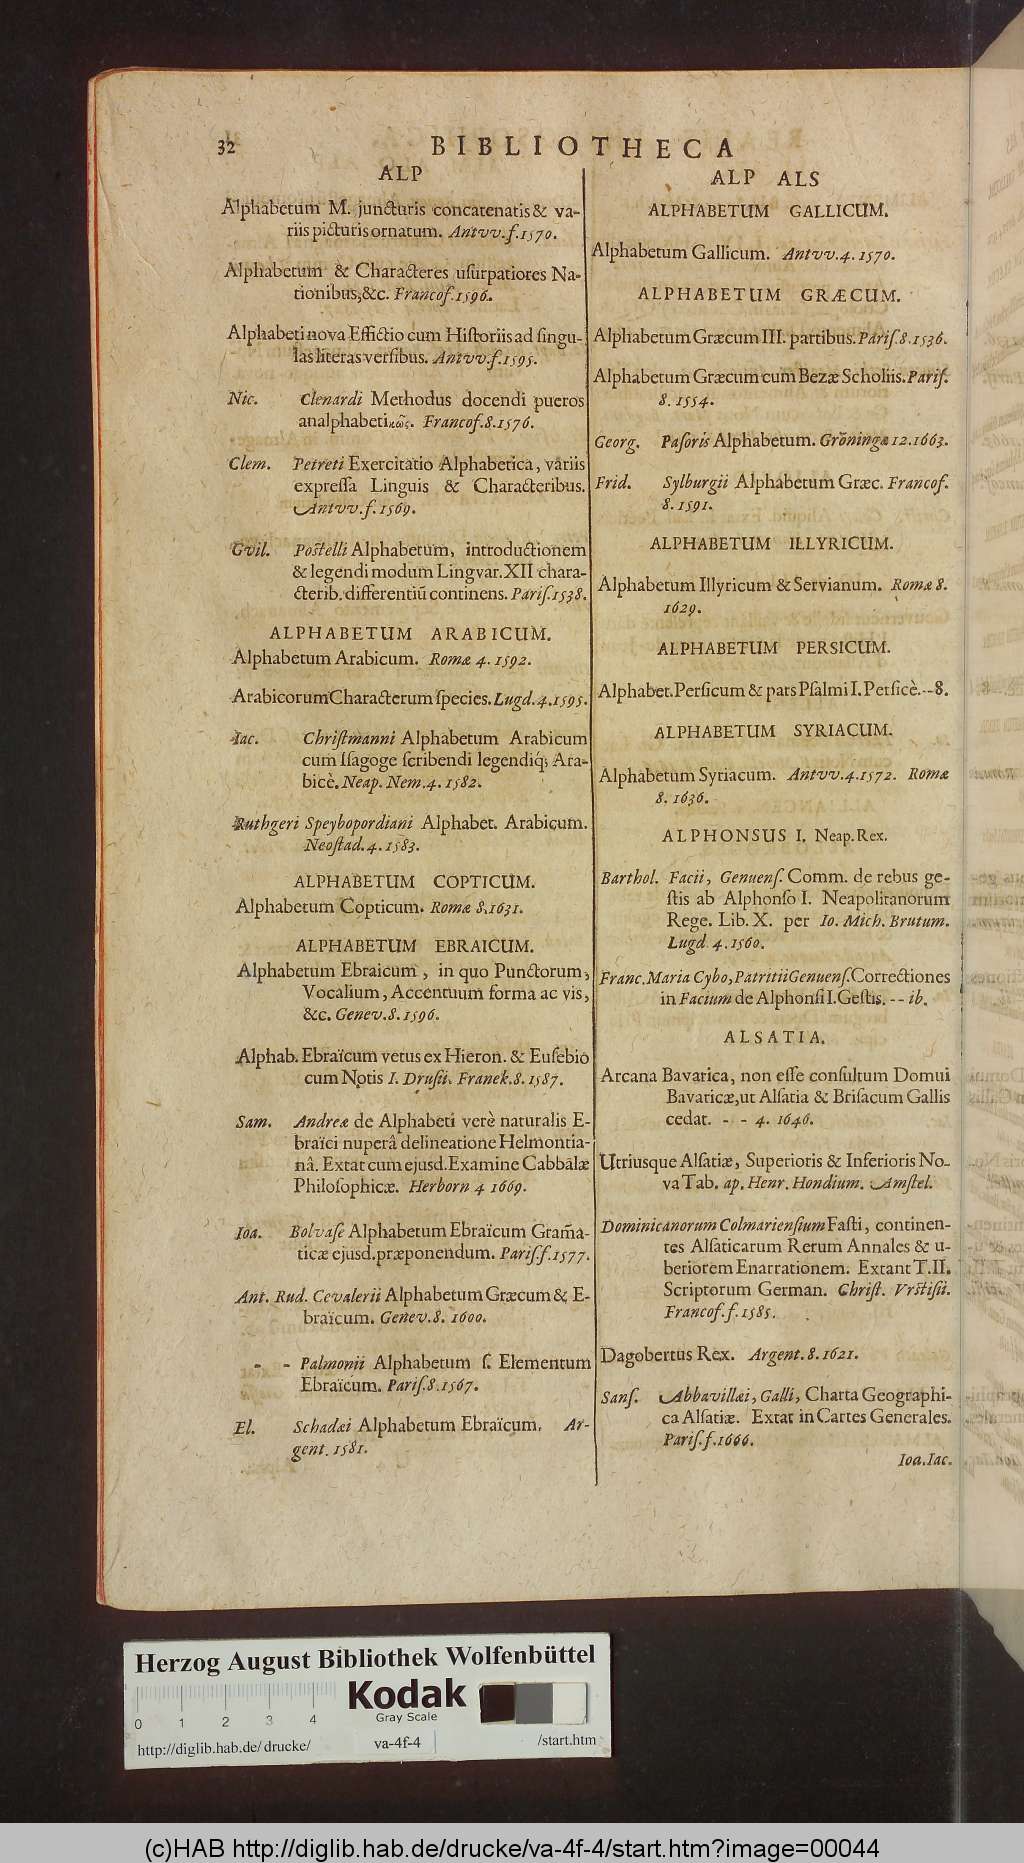 32
BIBLIOTHECA
ALP
Alphabetum M. juncturis concatenatis & va-
riis picturis ornatum. Antvv. f. 1570.
Alphabetum & Characteres uſurpatiores Na-
tionibus, &c. Francof. 1596.
Alphabeti nova Effictio cum Hiſtoriis ad ſingu-
las literas verſibus. Antvv. f. 1595.
Nic. Clenardi Methodus docendi pueros
analphabetικῶς. Francof. 8. 1576.
Clem. Petreti Exercitatio Alphabetica, variis
expreſſa Linguis & Characteribus.
Antvv. f. 1569.
Gvil. Poſtelli Alphabetum, introductionem
& legendi modum Lingvar. XII chara-
cterib. differentiū continens. Pariſ. 1538.
ALPHABETUM ARABICUM.
Alphabetum Arabicum. Romæ 4. 1592.
Arabicorum Characterum ſpecies. Lugd. 4. 1595.
Iac. Chriſtmanni Alphabetum Arabicum
cum Iſagoge ſcribendi legendiq; Ara-
bicè. Neap. Nem. 4. 1582.
Ruthgeri Speybopordiani Alphabet. Arabicum.
Neoſtad. 4. 1583.
ALPHABETUM COPTICUM.
Alphabetum Copticum. Romæ 8. 1631.
ALPHABETUM EBRAICUM.
Alphabetum Ebraicum, in quo Punctorum,
Vocalium, Accentuum forma ac vis,
&c. Genev. 8. 1596.
Alphab. Ebraïcum vetus ex Hieron. & Euſebio
cum Notis I. Druſii. Franek. 8. 1587.
Sam. Andreæ de Alphabeti verè naturalis E-
braïci nuperâ delineatione Helmontia-
nâ. Extat cum ejusd. Examine Cabbalæ
Philoſophicæ. Herborn 4 1669.
Ioa. Bolvaſe Alphabetum Ebraïcum Gram̃a-
ticæ ejusd. præponendum. Pariſ. f. 1577.
Ant. Rud. Cevalerii Alphabetum Græcum & E-
braïcum. Genev. 8. 1600.
- - Palmonii Alphabetum ſ. Elementum
Ebraïcum. Pariſ. 8. 1567.
El. Schadæi Alphabetum Ebraïcum. Ar-
gent. 1581.
ALP ALS
ALPHABETUM GALLICUM.
Alphabetum Gallicum. Antvv. 4. 1570.
ALPHABETUM GRÆCUM.
Alphabetum Græcum III. partibus. Pariſ. 8. 1536.
Alphabetum Græcum cum Bezæ Scholiis. Pariſ.
8. 1554.
Georg. Paſoris Alphabetum. Gröningæ 12. 1663.
Frid. Sylburgii Alphabetum Græc. Francof.
8. 1591.
ALPHABETUM ILLYRICUM.
Alphabetum Illyricum & Servianum. Romæ 8.
1629.
ALPHABETUM PERSICUM.
Alphabet. Perſicum & pars Pſalmi I. Perſicè. -- 8.
ALPHABETUM SYRIACUM.
Alphabetum Syriacum. Antvv. 4. 1572. Romæ
8. 1636.
ALPHONSUS I. Neap. Rex.
Barthol. Facii, Genuenſ. Comm. de rebus ge-
ſtis ab Alphonſo I. Neapolitanorum
Rege. Lib. X. per Io. Mich. Brutum.
Lugd. 4. 1560.
Franc. Maria Cybo, Patritii Genuenſ. Correctiones
in Facium de Alphonſi I. Geſtis. -- ib.
ALSATIA.
Arcana Bavarica, non eſſe conſultum Domui
Bavaricæ, ut Alſatia & Briſacum Gallis
cedat. - - 4. 1646.
Utriusque Alſatiæ, Superioris & Inferioris No-
va Tab. ap. Henr. Hondium. Amſtel.
Dominicanorum Colmarienſium Faſti, continen-
tes Alſaticarum Rerum Annales & u-
beriorem Enarrationem. Extant T. II.
Scriptorum German. Chriſt. Vrſtiſii.
Francof. f. 1585.
Dagobertus Rex. Argent. 8. 1621.
Sanſ. Abbavillæi, Galli, Charta Geographi-
ca Alſatiæ. Extat in Cartes Generales.
Pariſ. f. 1666.
Ioa. Iac.
Herzog August Bibliothek Wolfenbüttel
Kodak
Gray Scale
0 1 2 3 4
http://diglib.hab.de/drucke/ va-4f-4 /start.htm
(c)HAB http://diglib.hab.de/drucke/va-4f-4/start.htm?image=00044